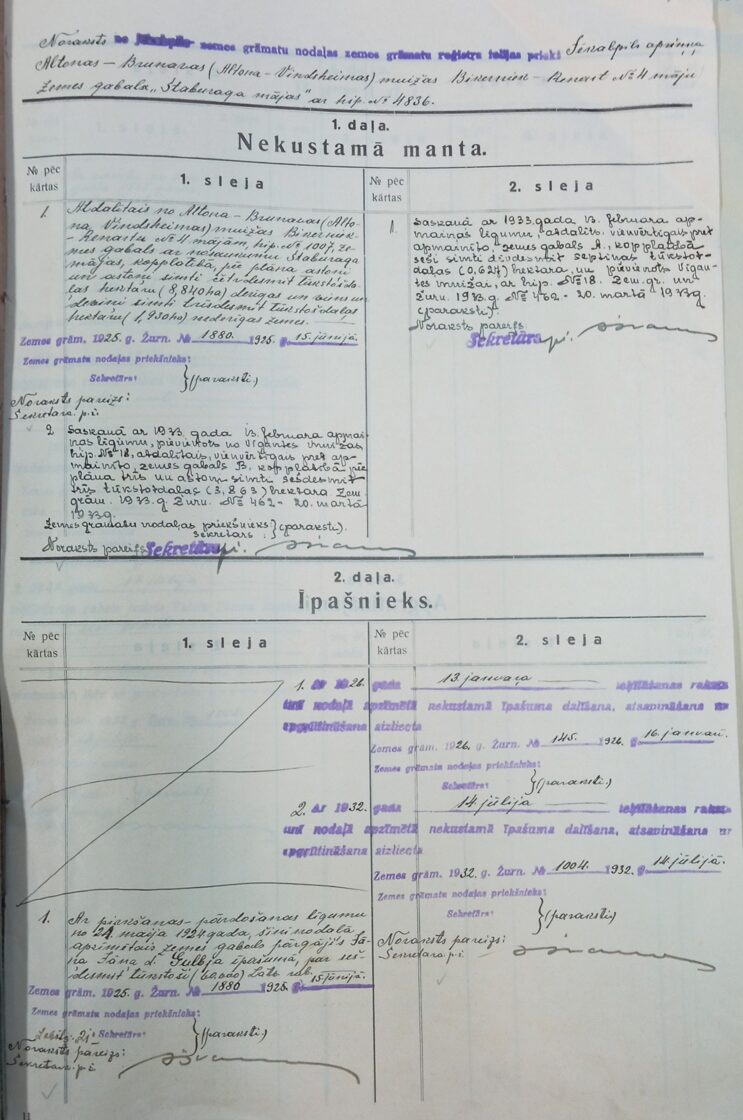 Noraksts no Jēkabpils zemes grāmatu nodaļas zemes grāmatu reģistra folijas priekš Jēkabpils apriņķa
Altonas-Brunavas (Altona-Vindsheimas) muižas Bikerniek-Renart № 4 māju
zemes gabala "Staburaga mājas" ar hip. № 4836.
1. daļa.
Nekustamā manta.
№ pēc kārtas
1. sleja
№ pēc kārtas
2. sleja
1. Atdalītais no Altona-Brunavas (Alto-
na Vindsheimas) muižas Bikerniek-
Renarta № 4 mājām, hip. № 1007, ze-
mes gabals ar nosaukumu Staburaga
mājas, kopplatībā, pēc plāna astoņi
un astoņi simti četrdesmit tūkstošda-
ļas hektāru (8,840 ha) derīgas un viens un
deviņi simti trīsdesmit tūkstošdaļas
hektāru (1,930 ha) nederīgas zemes.
Zemes grām. 1925. g. Žurn. № 1880 1925. g. 15. jūnijā.
Zemes grāmatu nodaļas priekšnieks:
Sekretārs: } (paraksti.)
Noraksts pareizs:
Sekretāra p. i.
2 Saskaņā ar 1933. gada 13. februara apmai-
ņas līgumu, pievienots no Vīgantes muižas
hip. № 18, atdalītais, vienvērtīgais pret ap-
mainīto, zemes gabals B. kopplatībā pēc
plāna trīs un astoņi simti sešdesmit
trīs tūkstošdaļas (3,863) hektara Zem.
grām. 1933. g. Žurn. № 462 - 20. martā
1933 g.
Zemes grāmatu nodaļas priekšnieks
sekretārs } (paraksti).
Noraksts pareizs Sekretārs p. i.
1. Saskaņā ar 1933. gada 13. februara ap-
maiņas līgumu, atdalīts, vienvērtīgais pret
apmainīto, zemes gabals A., kopplatībā
seši simti divdesmit septiņas tūkstoš-
daļas (0,627) hektara, un pievienots Vīgan-
tes muižai, ar hip. № 18. Zem. gr. un
Žurn. 1933. g. № 462 - 20. martā 1933 g.
(paraksti).
Noraksts pareizs.
Sekretārs p. i.
2. daļa.
Īpašnieks.
№ pēc kārtas
1. sleja
№ pēc kārtas
2. sleja
1. Ar 1926. gada 13. janvara ieķīlāšanas rakstu
šinī nodaļā apzīmētā nekustamā īpašuma dalīšana, atsavināšana un
apgrūtināšana aizliegta
Zemes grām. 1926. g. Žurn. № 145. 1926. g. 16. janvarī.
Zemes grāmatu nodaļas priekšnieks:
Sekretārs: } (paraksti.)
2. Ar 1932. gada 14. jūlija ieķīlāšanas rakstu
šinī nodaļā apzīmētā nekustamā īpašuma dalīšana, atsavināšana un
apgrūtināšana aizliegta
Zemes grām. 1932. g. Žurn. № 1004. 1932. g. 14. jūlijā.
Zemes grāmatu nodaļas priekšnieks:
Sekretārs: } (paraksti.)
Noraksts pareizs:
Sekretāra p. i.
1. Ar pirkšanas-pārdošanas līgumu
no 24. maija 1924 gada, šinī nodaļā
apzīmētais zemes gabals pārgājis Jā-
ņa Jāņa d. Gulbja īpašumā, par seš-
desmit tūkstoši (60,000) Lato rub.
Zemes grām. 1925. g. Žurn. № 1880 1925. g. 15. jūnijā.
Zemes grāmatu nodaļas priekšnieks:
Sekretārs: } (paraksti.)
Noraksts pareizs:
Sekretāra p. i.